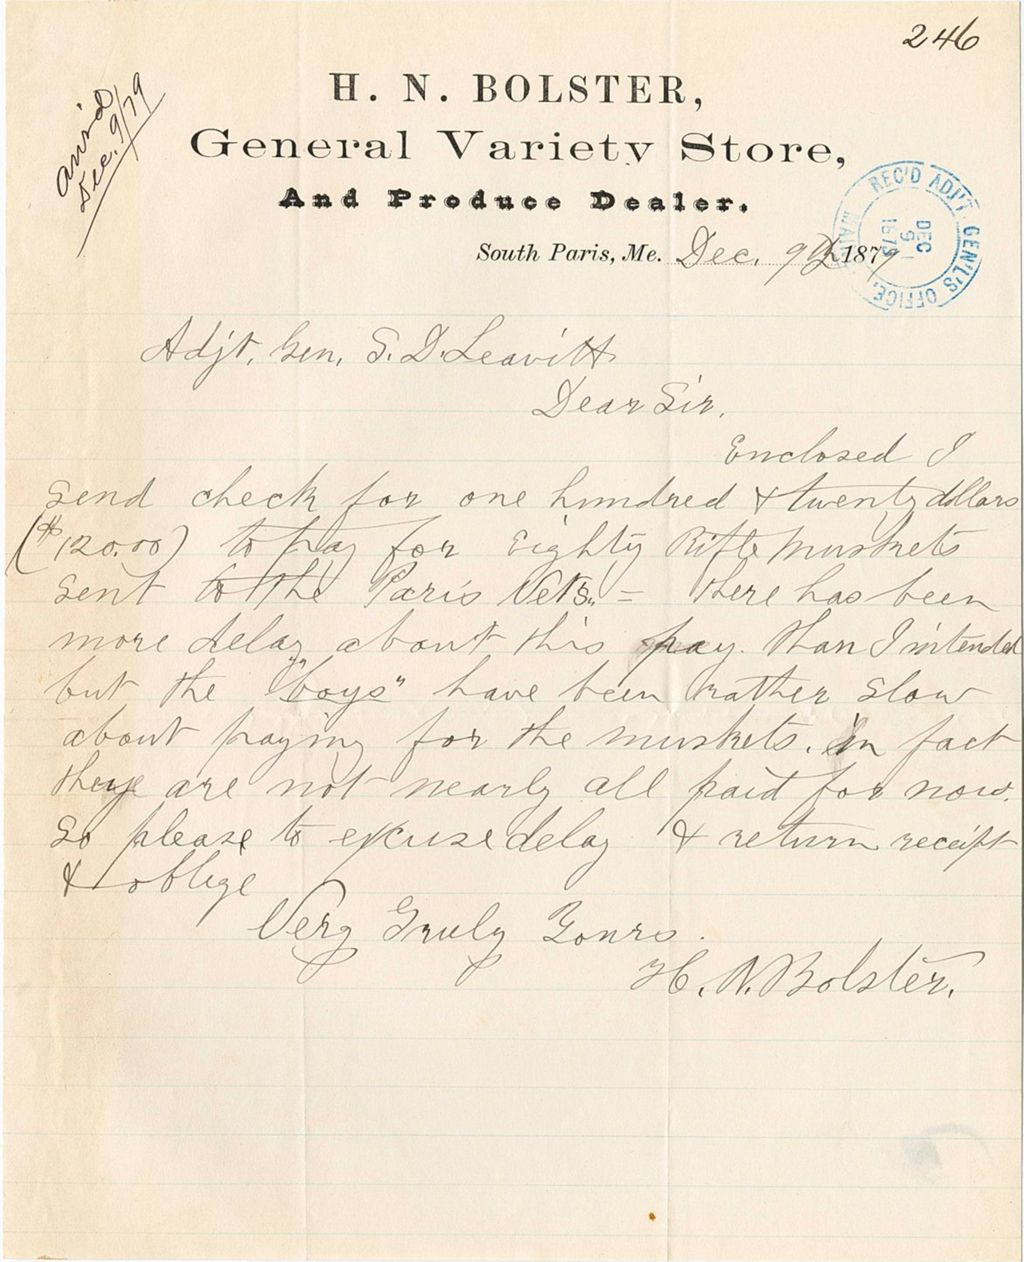 246
ans'd
Dec. 9/79
H. N. BOLSTER,
General Variety Store,
And Produce Dealer.
South Paris, Me. Dec. 9th 1879
REC'D ADJ'T GEN'L'S OFFICE, MAINE
DEC
9
1879
Adjt, Gen, S. D. Leavitt
Dear Sir,
Enclosed I
send check for one hundred & twenty dollars
($120.00) to pay for Eighty Rifle Muskets
sent to the Paris Vets" = there has been
more delay about this pay. than I intended
but the "boys" have been rather slow
about paying for the muskets. in fact
they are not nearly all paid for now.
So please to excuse delay & return receipt
& oblige
Very Truly Yours.
H. N. Bolster.